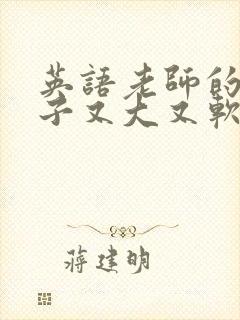 英語老師的
子又大又軟
蔣建明